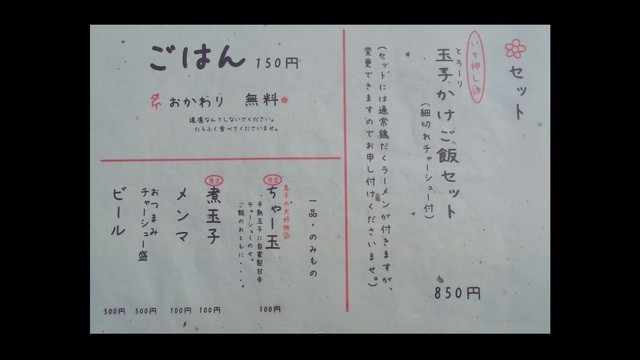 セット
いち押し
とろーり
玉子かけご飯セット
(細切れチャーシュー付)
850円
(セットには通常鶏だくラーメンが付きますが、
変更できますのでお申し付けくださいませ。)
ごはん 150円
おかわり 無料
遠慮なんてしないでください。
たらふく食べてくださいませ。
一品・のみもの
息子の大好物
ちゃー玉
半熟玉子に自家製甘辛
チャーシューのせ。
ご飯のおともに・・・。
100円
煮玉子
100円
メンマ
100円
おつまみ
チャーシュー盛
500円
ビール
500円